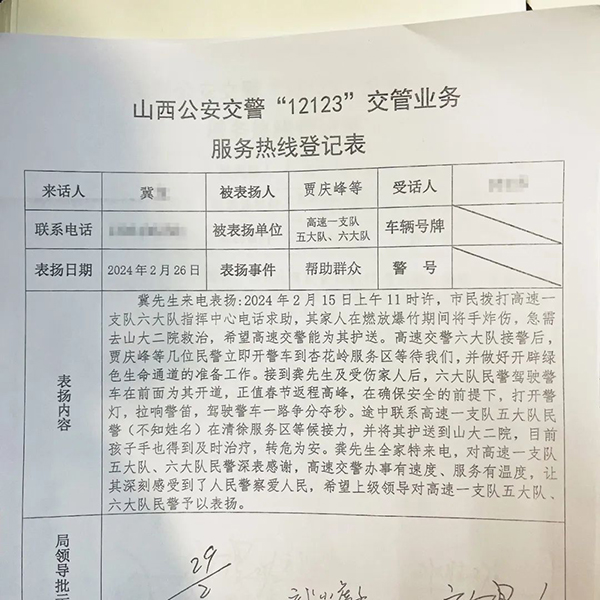 山西公安交警“12123”交管业务
服务热线登记表
来话人 冀 被表扬人 贾庆峰等 受话人
联系电话 被表扬单位 高速一支队 五大队、六大队 车辆号牌
表扬日期 2024年2月26日 表扬事件 帮助群众 警 号
表扬内容
冀先生来电表扬:2024年2月15日上午11时许，市民拨打高速一
支队六大队指挥中心电话求助，其家人在燃放爆竹期间将手炸伤，急需
去山大二院救治，希望高速交警能为其护送。高速交警六大队接警后，
贾庆峰等几位民警立即开警车到杏花岭服务区等待我们，并做好开辟绿
色生命通道的准备工作。接到龚先生及受伤家人后，六大队民警驾驶警
车在前面为其开道，正值春节返程高峰，在确保安全的前提下，打开警
灯，拉响警笛，驾驶警车一路争分夺秒。途中联系高速一支队五大队民
警（不知姓名）在清徐服务区等候接力，并将其护送到山大二院，目前
孩子手也得到及时治疗，转危为安。龚先生全家特来电，对高速一支队
五大队、六大队民警深表感谢，高速交警办事有速度、服务有温度，让
其深刻感受到了人民警察爱人民，希望上级领导对高速一支队五大队、
六大队民警予以表扬。
局领导批示
29/2